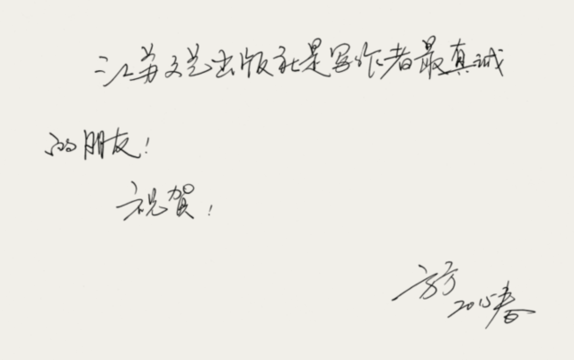 江苏文艺出版社是写作者最真诚
的朋友！
祝贺！
方方
2015春